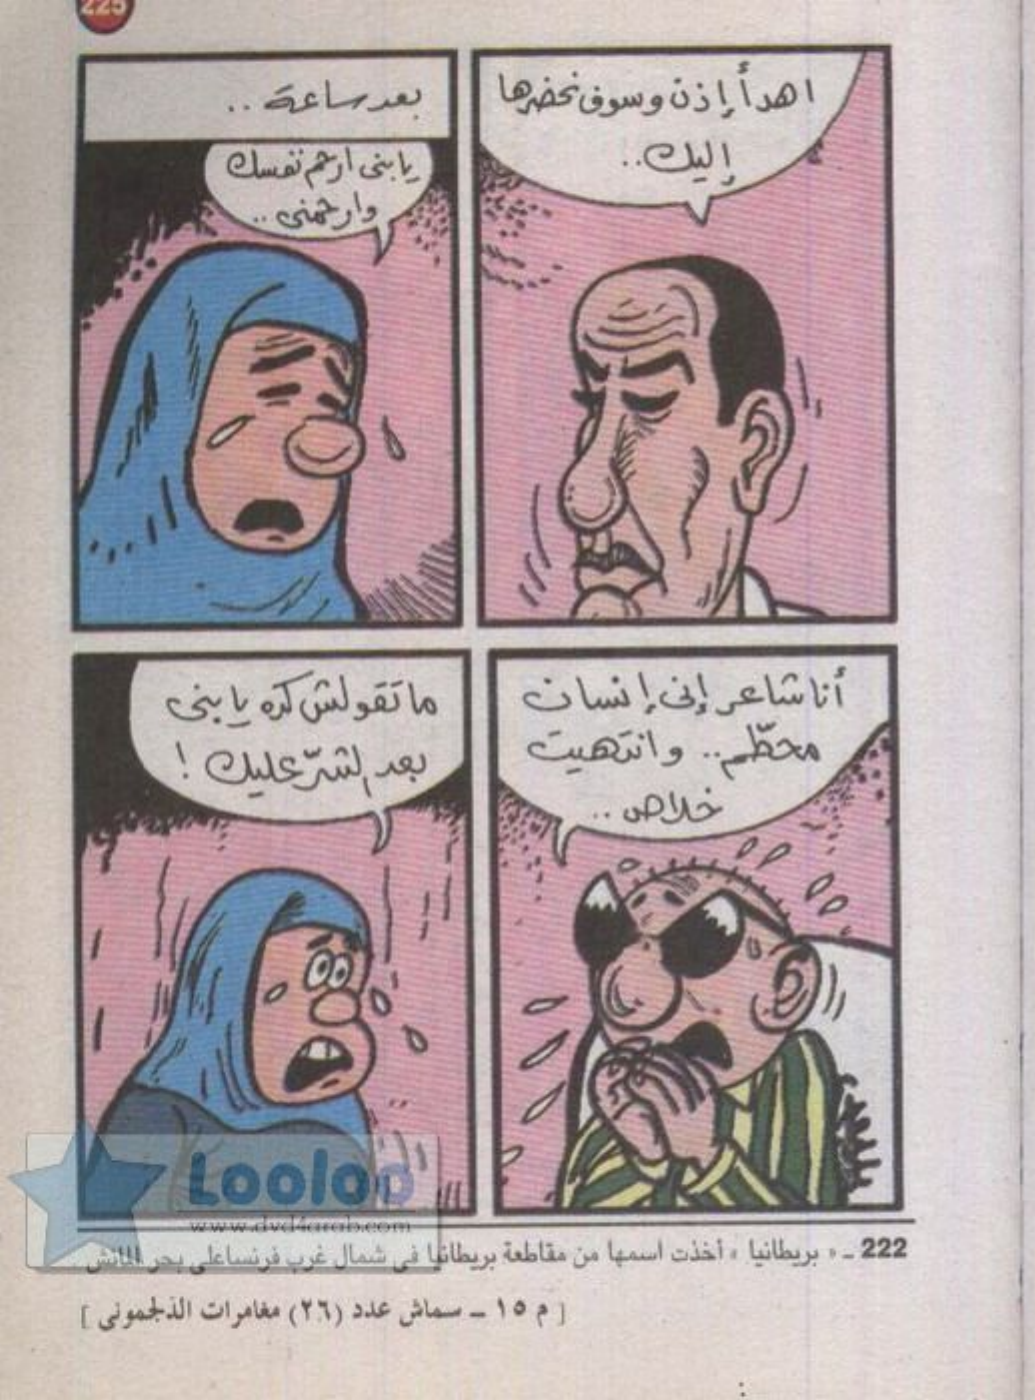 225
اهدأ إذن وسوف نحضرها
إليك..
بعد ساعة ..
يا بنى ارحم نفسك
وارحمنى ..
أنا شاعر إنى إنسان
محطّم.. وانتهيت
خلاص ..
ما تقولش كده يا بنى
بعد الشرّ عليك !
Looloo
www.dvd4arab.com
222 ـ « بريطانيا » أخذت اسمها من مقاطعة بريطانيا فى شمال غرب فرنسا على بحر المانش
[ م ١٥ ـ سماش عدد (٢٦) مغامرات الذلجمونى ]